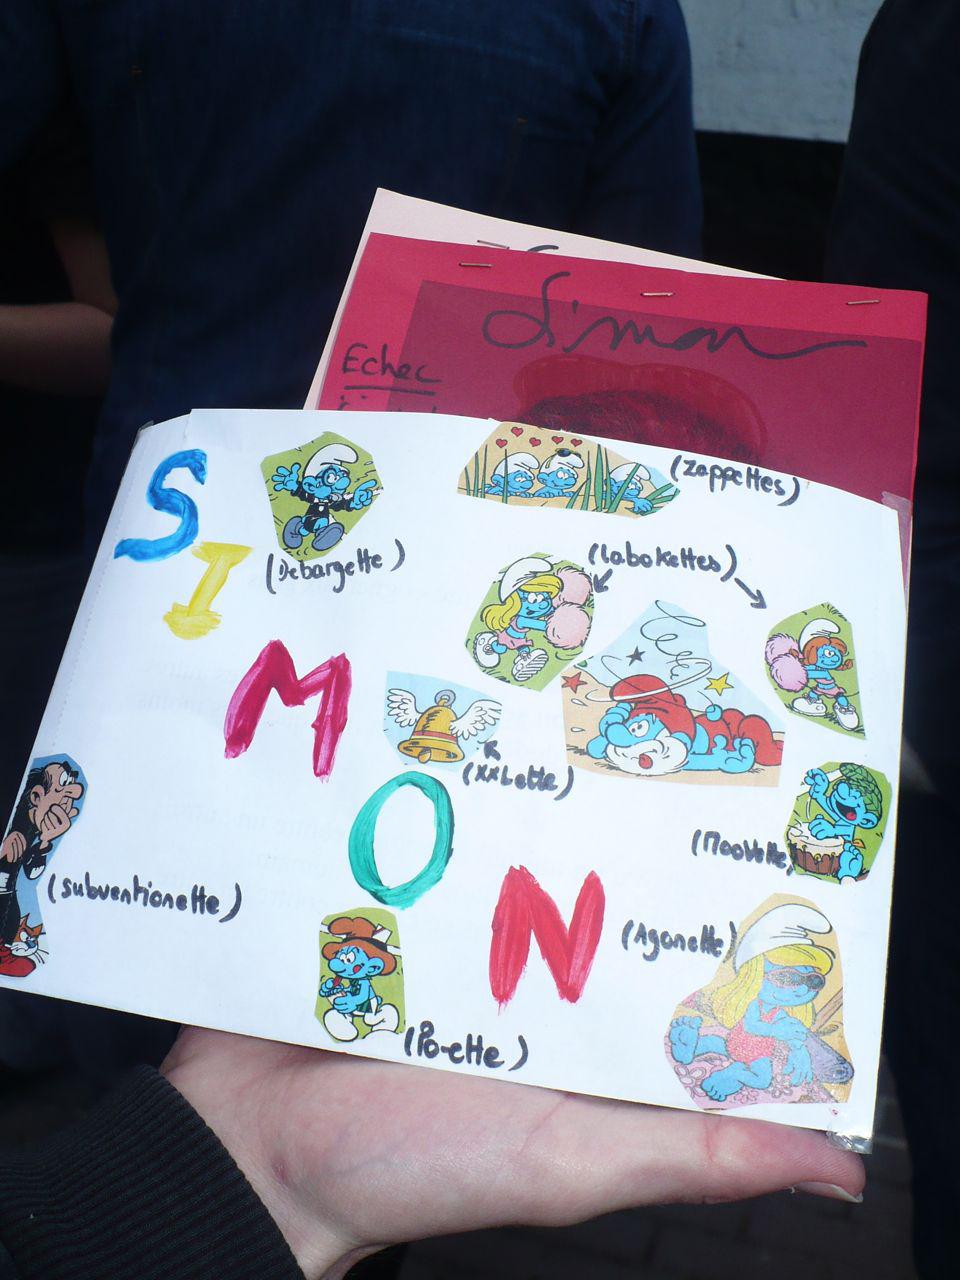 Simon
Echec
SIMON
(Debargette)
(Zappettes)
(Labokettes)
(XXLette)
(Moovette)
(Subventionette)
(Agonette)
(Po-ette)